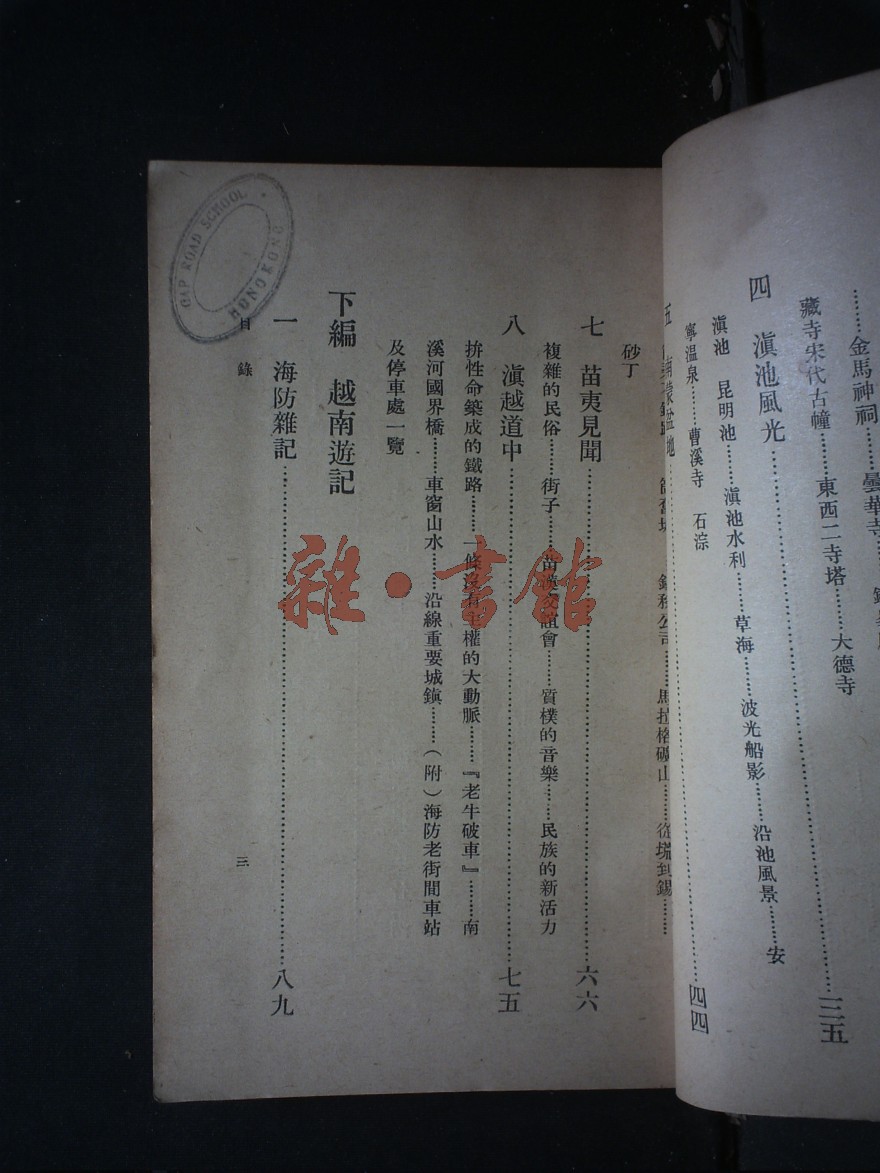 ……金馬神祠……曇華寺……
藏寺宋代古幢……東西二寺塔……大德寺
……三五
四 滇池風光……四四
滇池 昆明池……滇池水利……草海……波光船影……沿池風景……安
寧溫泉……曹溪寺 石淙
馬拉格礦山……從塃到錫……
砂丁
七 苗夷見聞……六六
複雜的民俗……街子……苗漢交誼會……質樸的音樂……民族的新活力
八 滇越道中……七五
拚性命築成的鐵路……一條沒有主權的大動脈……『老牛破車』……南
溪河國界橋……車窗山水……沿線重要城鎮……（附）海防老街間車站
及停車處一覽
下編 越南遊記
一 海防雜記……八九
目錄
三
GAP ROAD SCHOOL
HONGKONG
雜·書館